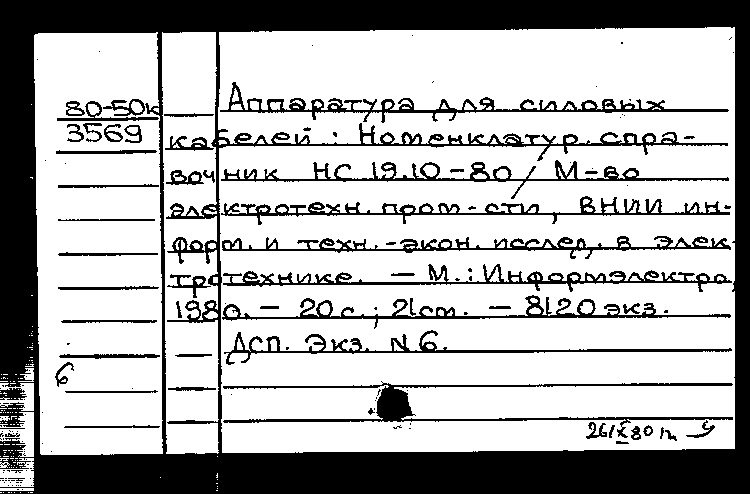 80-50к
3569
Аппаратура для силовых
кабелей : Номенклатур. спра-
вочник НС 19.10-80 / М-во
электротехн. пром-сти, ВНИИ ин-
форм. и техн.-экон. исслед. в элек-
тротехнике. — М.: Информэлектро,
1980. — 20 с.; 21 см. — 8120 экз.
Дсп. Экз. N 6.
6
26/X 80